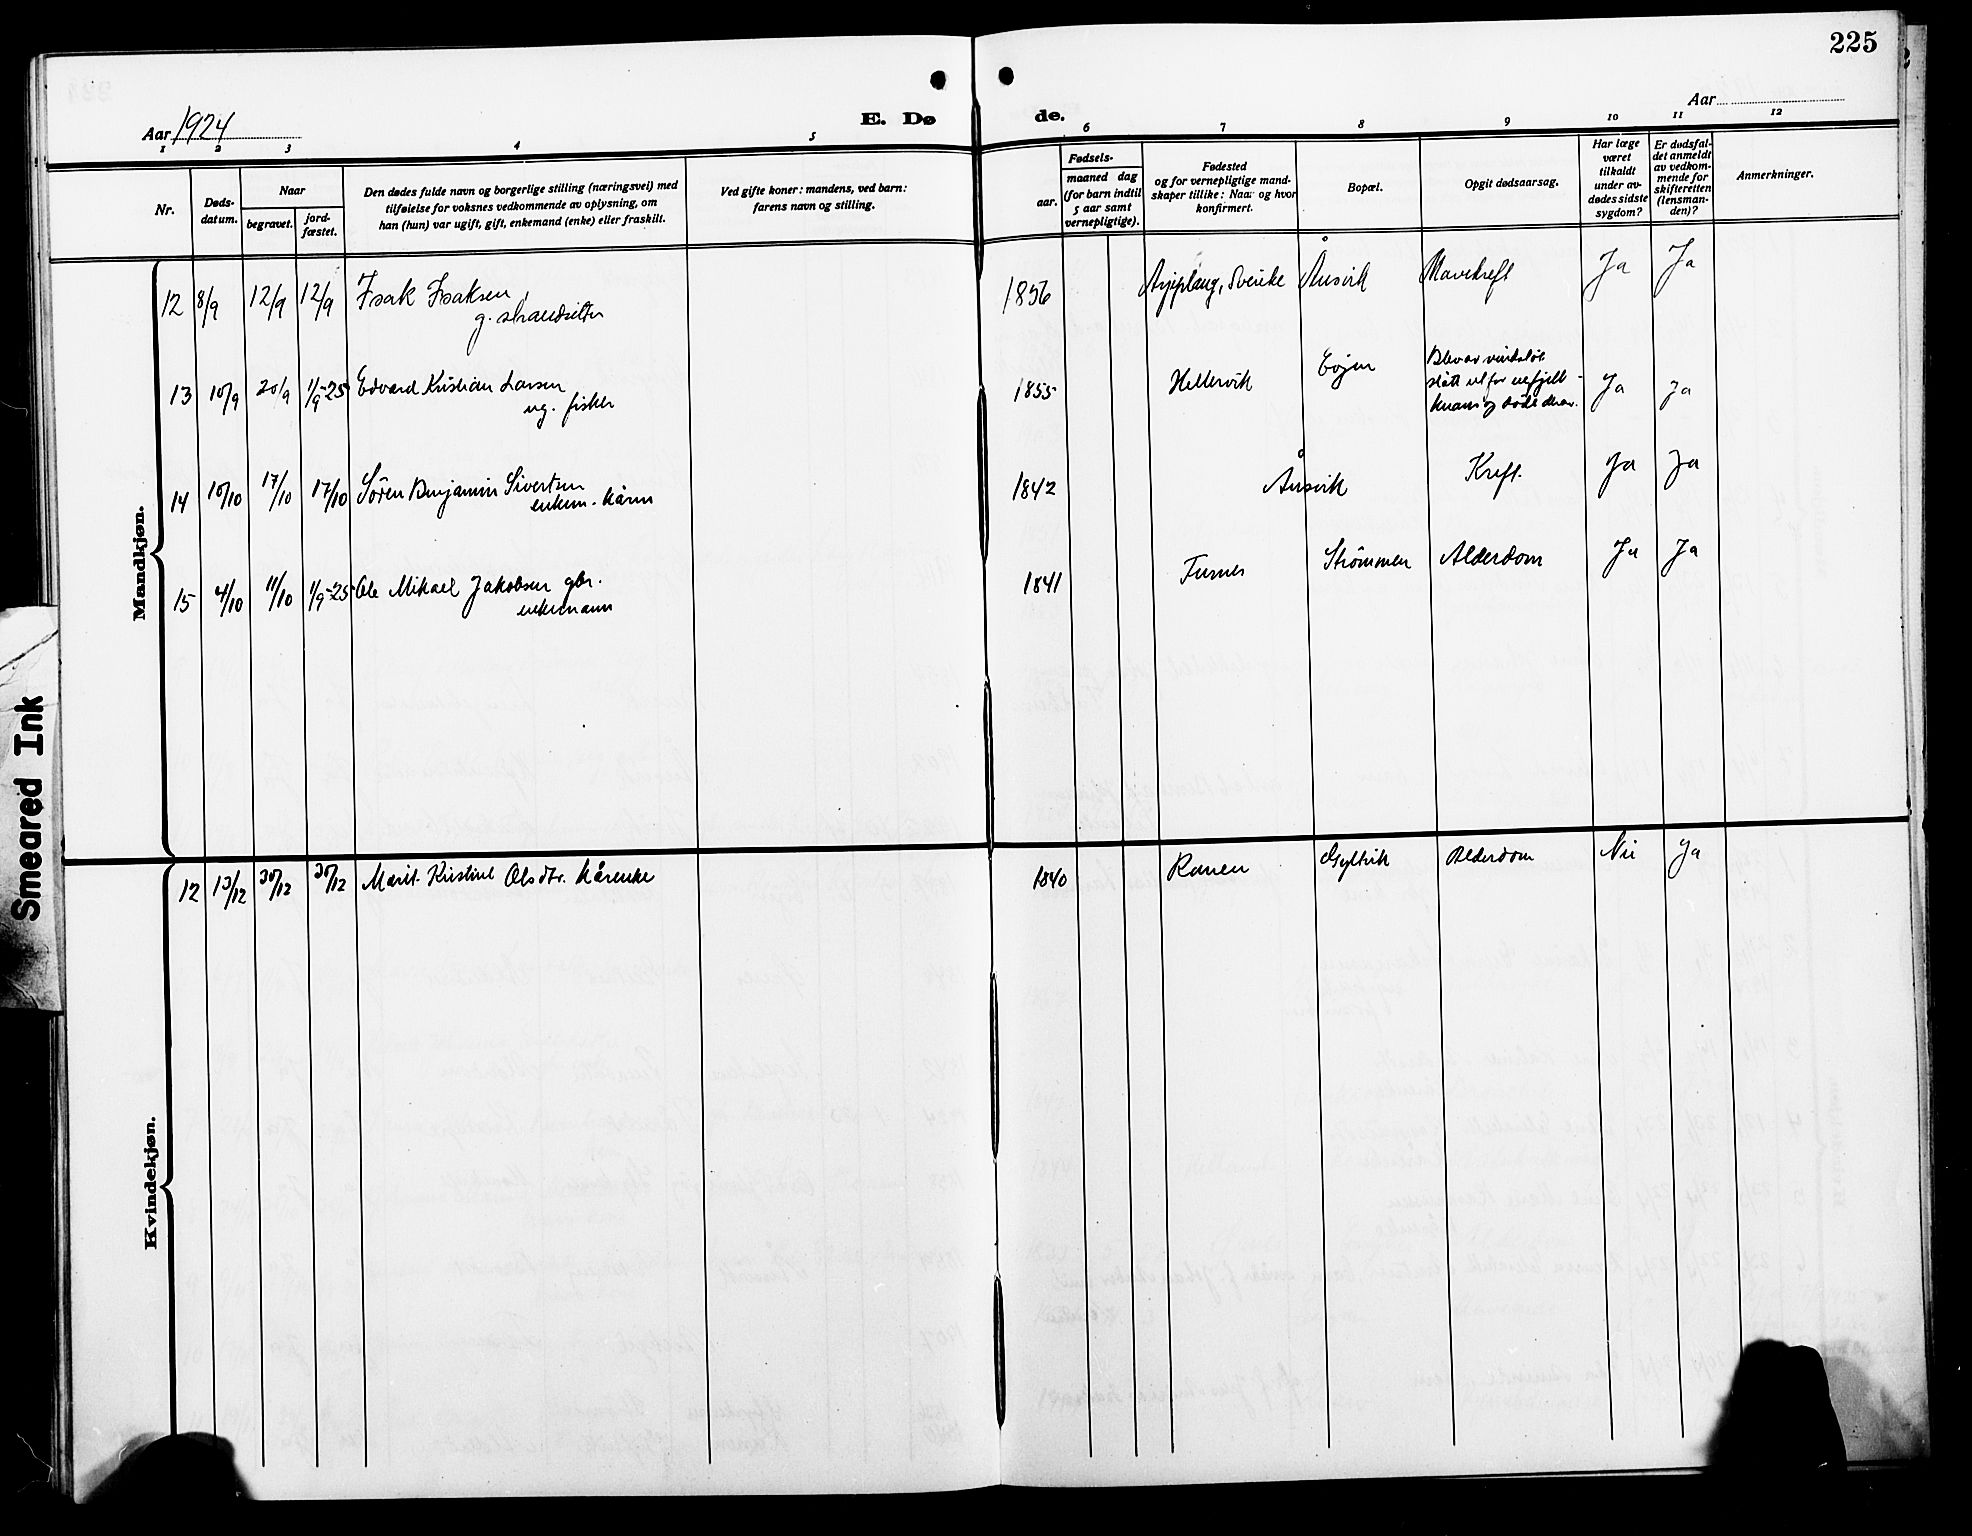 225
Aar 1924
E. Dø
de.
Aar
1 2 3 4 5 6 7 8 9 10 11 12
Nr.
Døds-
datum.
Naar
begravet.
jord-
fæstet.
Den dødes fulde navn og borgerlige stilling (næringsvei) med
tilføielse for voksnes vedkommende av oplysning, om
han (hun) var ugift, gift, enkemand (enke) eller fraskilt.
Ved gifte koner: mandens, ved barn:
farens navn og stilling.
Fødsels-
aar.
maaned dag
(for barn indtil
5 aar samt
vernepligtige).
Fødested
og for vernepligtige mand-
skaper tillike: Naar og hvor
konfirmert.
Bopæl.
Opgit dødsaarsag.
Har læge
været
tilkaldt
under av-
dødes sidste
sygdom?
Er dødsfal-
det anmeldt
av vedkom-
mende for
skifteretten
(lensman-
den)?
Anmerkninger.
Mandkjøn.
12 8/9 12/9 12/9 Isak Isaksen, 1856 Arjeplaug, Sverike Ånsvik Mavekreft Ja Ja
g. strandsitter
13 10/9 20/9 1/9-25 Edvard Kristian Larsen 1855 Hellervik Ja Ja
ug. fisker
slått ut for
og døde derav.
14 10/10 17/10 17/10 Søren Benjamin Sivertsen 1842 Ånsvik Kreft. Ja Ja
enkem. kårm
15 4/10 11/10 1/9-25 Ole Mikael Jakobsen gbr. 1841 Furnes Strømmen Alderdom Ja Ja
enkemann
Kvindekjøn.
12 13/12 30/12 30/12 Marit Kristine Olsdtr. kårenke 1840 Ranen Gyltvik Alderdom Nei Ja
Smeared Ink